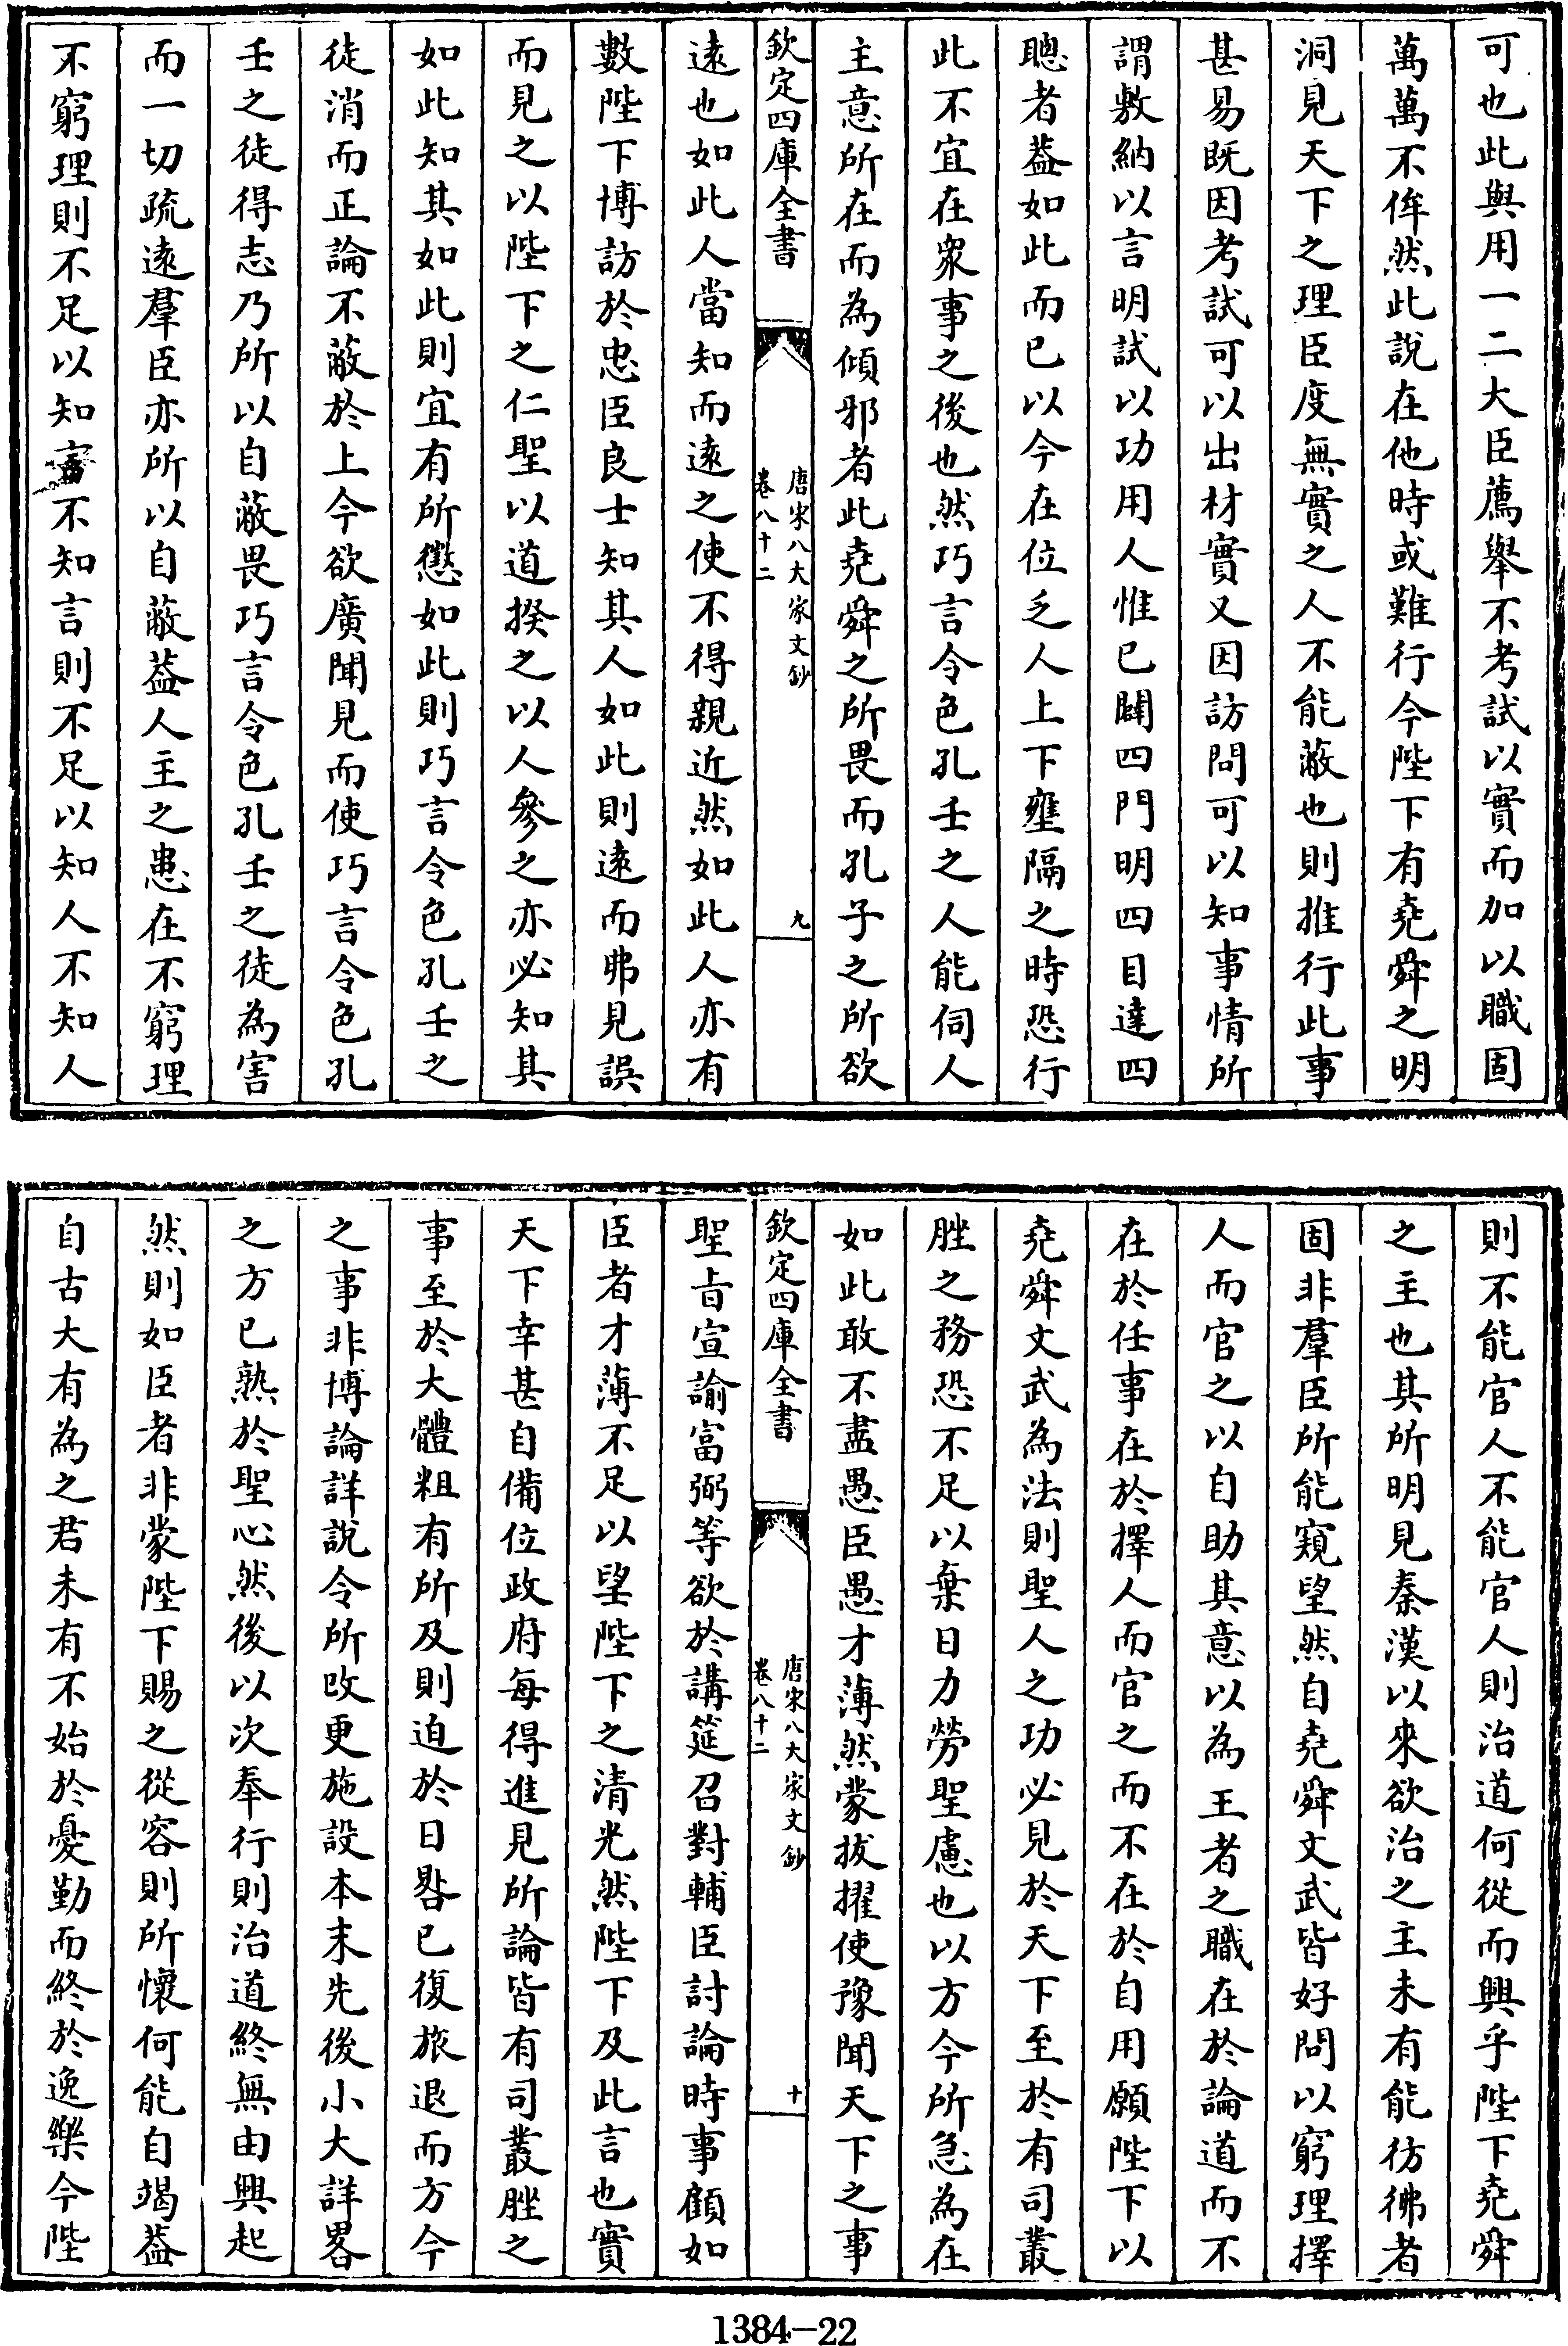 可也此與用一二大臣薦舉不考試以實而加以職固
萬萬不侔然此說在他時或難行今陛下有堯舜之明
洞見天下之理臣度無實之人不能蔽也則推行此事
甚易既因考試可以出材實又因訪問可以知事情所
謂敷納以言明試以功用人惟已闢四門明四目達四
聰者葢如此而已以今在位乏人上下壅隔之時恐行
此不宜在衆事之後也然巧言令色孔壬之人能伺人
主意所在而為傾邪者此堯舜之所畏而孔子之所欲
欽定四庫全書
唐宋八大家文鈔
卷八十二
九
遠也如此人當知而遠之使不得親近然如此人亦有
數陛下博訪於忠臣良士知其人如此則遠而弗見誤
而見之以陛下之仁聖以道揆之以人參之亦必知其
如此知其如此則宜有所懲如此則巧言令色孔壬之
徒消而正論不蔽於上今欲廣聞見而使巧言令色孔
壬之徒得志乃所以自蔽畏巧言令色孔壬之徒為害
而一切疏遠羣臣亦所以自蔽葢人主之患在不窮理
不窮理則不足以知言不知言則不足以知人不知人
則不能官人不能官人則治道何從而興乎陛下堯舜
之主也其所明見秦漢以來欲治之主未有能彷彿者
固非羣臣所能窺望然自堯舜文武皆好問以窮理擇
人而官之以自助其意以為王者之職在於論道而不
在於任事在於擇人而官之而不在於自用願陛下以
堯舜文武為法則聖人之功必見於天下至於有司叢
脞之務恐不足以棄日力勞聖慮也以方今所急為在
如此敢不盡愚臣愚才薄然蒙拔擢使豫聞天下之事
欽定四庫全書
唐宋八大家文鈔
卷八十二
十
聖㫖宣諭富弼等欲於講筵召對輔臣討論時事顧如
臣者才薄不足以望陛下之清光然陛下及此言也實
天下幸甚自備位政府每得進見所論皆有司叢脞之
事至於大體粗有所及則迫於日晷已復旅退而方今
之事非博論詳說令所改更施設本末先後小大詳畧
之方已熟於聖心然後以次奉行則治道終無由興起
然則如臣者非蒙陛下賜之從容則所懷何能自竭葢
自古大有為之君未有不始於憂勤而終於逸樂今陛
1384—22